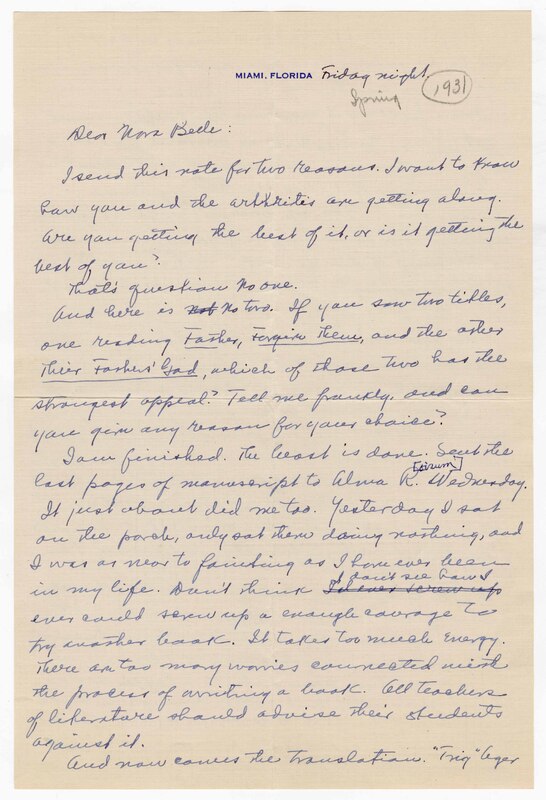 MIAMI, FLORIDA Friday night,
Spring 1931
Dear Nora Bede:
I send this note for two reasons. I want to know
how you and the arthritis are getting along.
Are you getting the best of it, or is it getting the
best of you?
That's question No one.
And here is not No two. If you saw two titles,
one reading Father, Forgive Them, and the other
Their Fathers' God, which of those two has the
strongest appeal? Tell me frankly and can
you give any reason for your choice?
I am finished. The beast is done. Sent the
last pages of manuscript to Alma R. Wednesday.
It just about did me too. Yesterday I sat
on the porch, only sat there doing nothing, and
I was as near to fainting as I have ever been
in my life. Don't think I'd ever screw up I don't see how I
ever could screw up a enough courage to
try another book. It takes too much energy.
There are too many worries connected with
the process of writing a book. All teachers
of literature should advise their students
against it.
And now comes the translation. "Trig" Ager